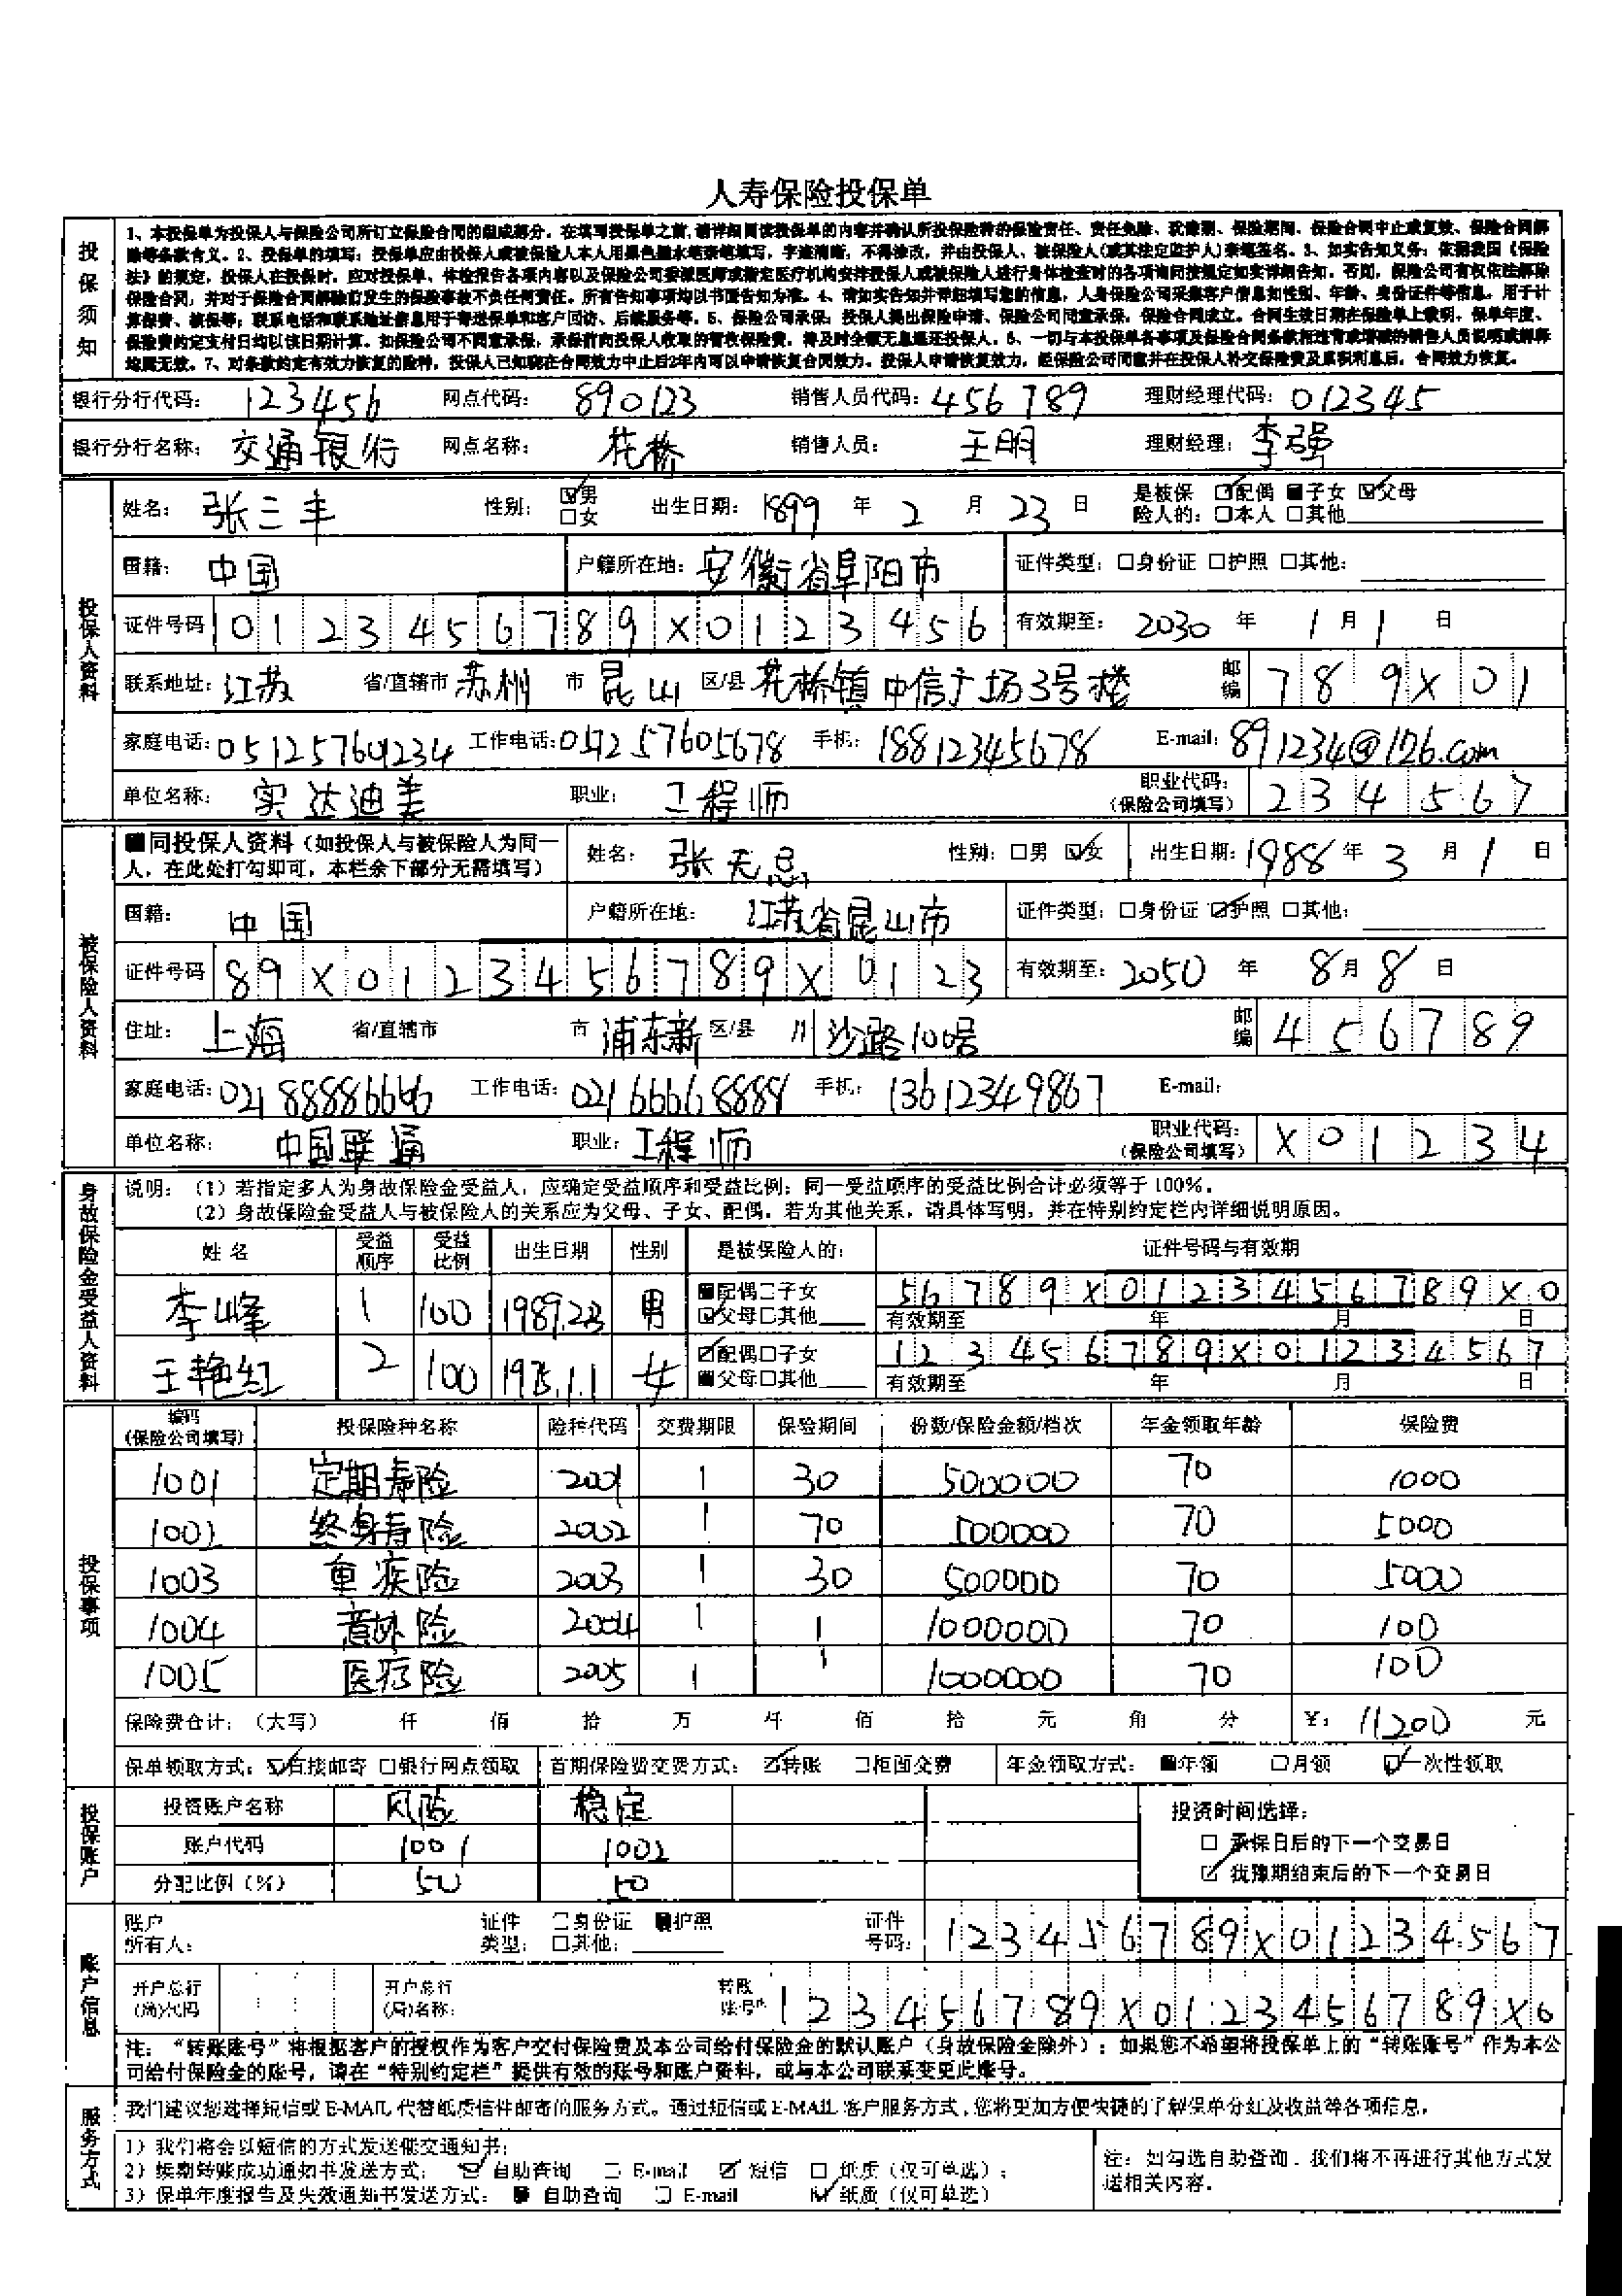 人寿保险投保单
投保须知
1、本投保单为投保人与保险公司所订立保险合同的组成部分，在填写投保单之前，请详细阅读投保单的内容并确认所投保险种的保险责任、责任免除、犹豫期、保险期间、保险合同中止或复效、保险合同解
除等条款含义。2、投保单的填写：投保单应由投保人或被保险人本人用黑色墨水笔亲笔填写，字迹清晰，不得涂改，并由投保人、被保险人（或其法定监护人）亲笔签名。3、如实告知义务：依据我国《保险
法》的规定，投保人在投保时，应对投保单、体检报告各项内容以及保险公司委派医师或指定医疗机构安排投保人或被保险人进行身体检查时的各项询问按规定如实详细告知。否则，保险公司有权依法解除
保险合同，并对于保险合同解除前发生的保险事故不负任何责任。所有告知事项均以书面告知为准。4、请如实告知并详细填写您的信息，人身保险公司采集客户信息如性别、年龄、身份证件等信息，用于计
算保费、核保等；联系电话和联系地址信息用于寄送保单和客户回访、后续服务等。5、保险公司承保：投保人提出保险申请、保险公司同意承保，保险合同成立。合同生效日期在保险单上载明，保单年度、
保险费约定支付日均以该日期计算。如保险公司不同意承保，承保前向投保人收取的暂收保险费，将及时全额无息退还投保人。6、一切与本投保单各事项及保险合同条款相违背或增减的销售人员说明或解释
均属无效。7、对条款约定有效力恢复的险种，投保人已知晓在合同效力中止后2年内可以申请恢复合同效力。投保人申请恢复效力，经保险公司同意并在投保人补交保险费及累积利息后，合同效力恢复。
银行分行代码： 123456 网点代码： 890123 销售人员代码：456789 理财经理代码：012345
银行分行名称： 交通银行 网点名称： 花桥 销售人员： 王明 理财经理：李强
投保人资料
姓名： 张三丰 性别： ☑男 □女 出生日期： 1899 年 2 月 23 日 是被保险人的： ☑配偶 ■子女 ☑父母 □本人 □其他
国籍： 中国 户籍所在地：安徽省阜阳市 证件类型：□身份证 □护照 □其他：
证件号码 0123456789X0123456 有效期至： 2030 年 1 月 1 日
联系地址：江苏 省/直辖市 苏州 市 昆山 区/县 花桥镇中信广场3号楼 邮编 789X01
家庭电话：051257601234 工作电话：051257605678 手机：18812345678 E-mail：891234@126.com
单位名称： 实达迪美 职业： 工程师 职业代码：（保险公司填写） 234567
被保险人资料
■同投保人资料（如投保人与被保险人为同一
人，在此处打勾即可，本栏余下部分无需填写）
姓名： 张无忌 性别：□男 ☑女 出生日期：1988 年 3 月 1 日
国籍： 中国 户籍所在地： 江苏省昆山市 证件类型：□身份证 ☑护照 □其他：
证件号码 89X0123456789X0123 有效期至：2050 年 8 月 8 日
住址： 上海 省/直辖市 市 浦东新 区/县 川沙路100号 邮编 456789
家庭电话：02188886666 工作电话：02166668888 手机： 13612349867 E-mail：
单位名称： 中国联通 职业：工程师 职业代码：（保险公司填写） X01234
身故保险金受益人资料
说明：（1）若指定多人为身故保险金受益人，应确定受益顺序和受益比例；同一受益顺序的受益比例合计必须等于100%。
（2）身故保险金受益人与被保险人的关系应为父母、子女、配偶。若为其他关系，请具体写明，并在特别约定栏内详细说明原因。
姓 名 受益顺序 受益比例 出生日期 性别 是被保险人的： 证件号码与有效期
李峰 1 100 1989.2.3 男 ■配偶□子女 ☑父母□其他 56789X0123456789X0
有效期至 年 月 日
王艳红 2 100 1975.1.1 女 ☑配偶□子女 ■父母□其他 123456789X01234567
有效期至 年 月 日
投保事项
编码（保险公司填写） 投保险种名称 险种代码 交费期限 保险期间 份数/保险金额/档次 年金领取年龄 保险费
1001 定期寿险 2001 1 30 500000 70 1000
1002 终身寿险 2002 1 70 500000 70 5000
1003 重疾险 2003 1 30 500000 70 5000
1004 意外险 2004 1 1 1000000 70 100
1005 医疗险 2005 1 1 1000000 70 100
保险费合计：（大写） 仟 佰 拾 万 仟 佰 拾 元 角 分 ￥：11200 元
保单领取方式：☑直接邮寄 □银行网点领取 首期保险费交费方式：☑转账 □柜面交费 年金领取方式：■年领 □月领 ☑一次性领取
投保账户
投资账户名称 风险 稳定
账户代码 1001 1002
分配比例（%） 50 50
投资时间选择：
□ 承保日后的下一个交易日
☑ 犹豫期结束后的下一个交易日
账户信息
账户所有人： 证件类型： □身份证 ■护照 □其他： 证件号码： 123456789X01234567
开户总行(局)代码 开户总行(局)名称： 转账账号： 123456789X0123456789X0
注：“转账账号”将根据客户的授权作为客户交付保险费及本公司给付保险金的默认账户（身故保险金除外）；如果您不希望将投保单上的“转账账号”作为本公
司给付保险金的账号，请在“特别约定栏”提供有效的账号和账户资料，或与本公司联系变更此账号。
服务方式
我们建议您选择短信或E-MAIL代替纸质信件邮寄的服务方式。通过短信或E-MAIL客户服务方式，您将更加方便快捷的了解保单分红及收益等各项信息。
1）我们将会以短信的方式发送催交通知书；
2）续期转账成功通知书发送方式： ☑ 自助查询 □ E-mail ☑ 短信 □ 纸质（仅可单选）；
3）保单年度报告及失效通知书发送方式： ■ 自助查询 □ E-mail ☑ 纸质（仅可单选）
注：如勾选自助查询，我们将不再进行其他方式发
送相关内容。